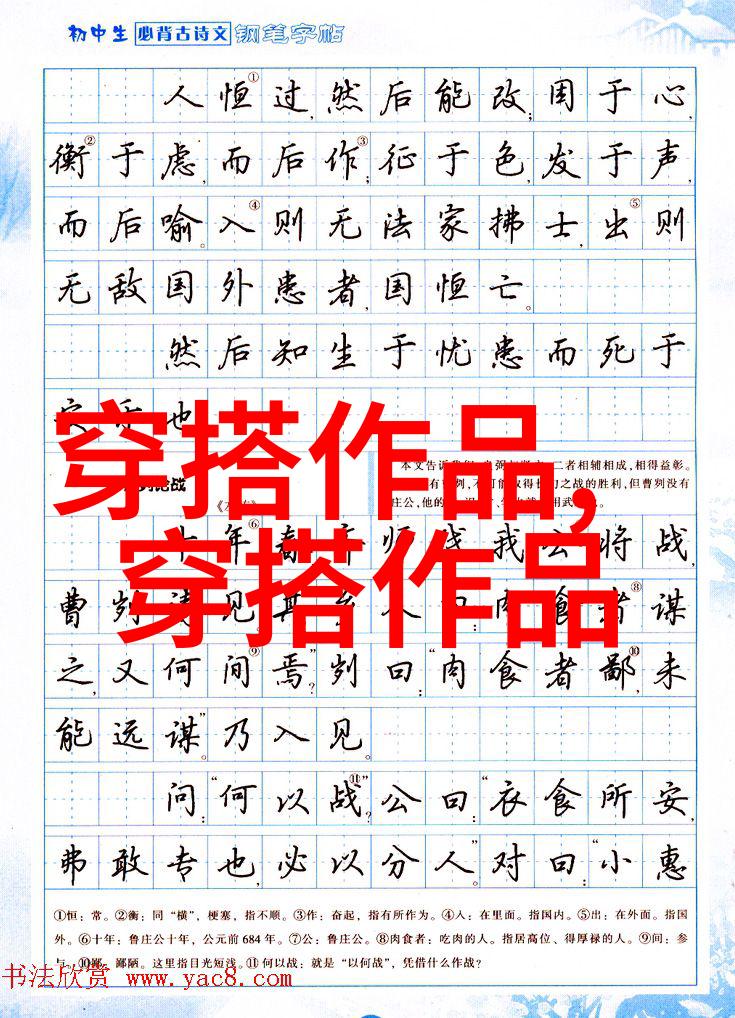 初中生 必背古诗文 钢笔字帖
人恒①过,然后能改;困于心,
衡②于虑,而后作③;征于色,发于声,
而后喻。入④则无法家拂士,出⑤则
无敌国外患者,国恒亡。
然后知生于忧患而死于
安乐也
穿搭作品,
穿搭作品
论战
本文告诉我们 二者相辅相成,相得益彰。
有曹刿,不可能取得长勺之战的胜利,但曹刿没有
庄公,他的 用武
十年⑥春齐师伐我公将战,
曹刿请见其乡人曰:肉食者⑧谋
之,又何间⑨焉?”刿曰:“肉食者鄙⑩,未
能远谋。”乃入见。
问:“何以战⑪?”公曰:“衣食所安,
弗敢专也,必以分人。”对曰:“小惠
①恒:常。②衡:同“横”,梗塞,指不顺。③作:奋起,指有所作为。④入:在里面。指国内。⑤出:在外面。指国
外。⑥十年:鲁庄公十年,公元前684年。⑦公:鲁庄公。⑧肉食者:吃肉的人。指居高位、得厚禄的人。⑨间:参
与。⑩鄙:鄙陋。这里指目光短浅。⑪何以战:就是“以何战”,凭借什么作战?
书法欣赏 www.yac8.com